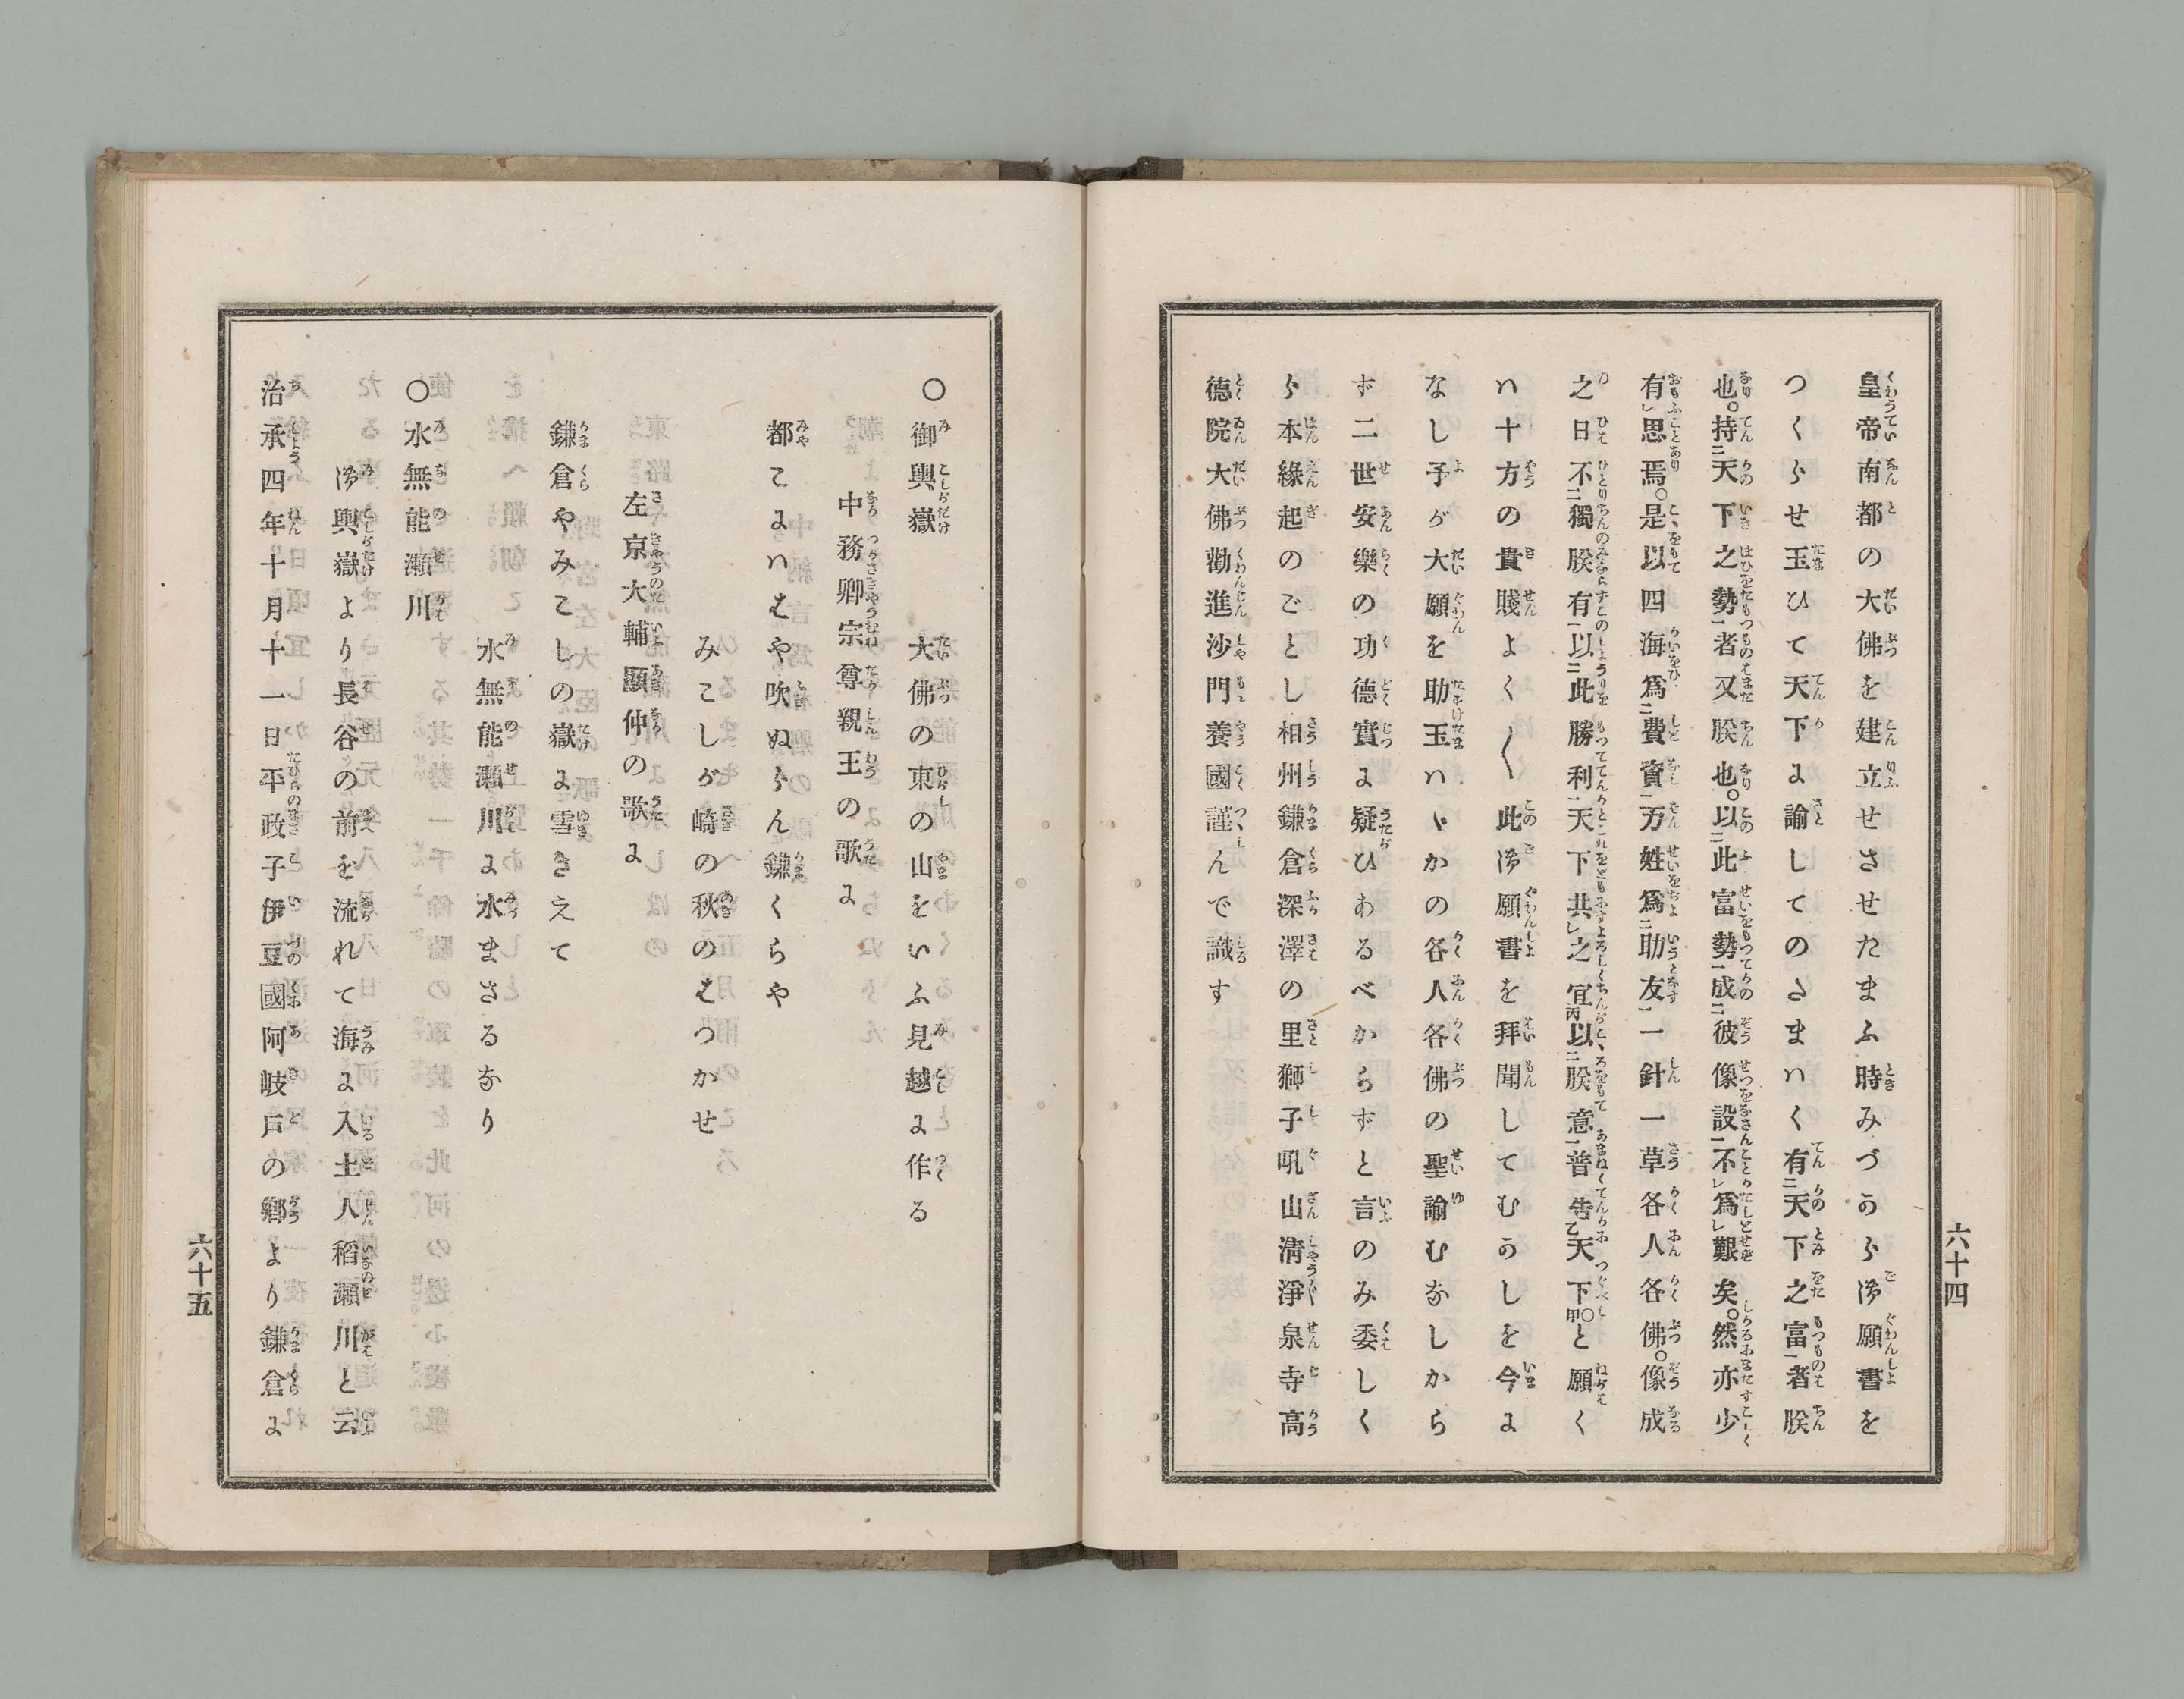 皇帝南都の大佛を建立せさせたまふ時みづから御願書を
つくらせ玉ひて天下に諭してのたまハく有二天下之富一者朕
也。持二天下之勢一者又朕也。以二此富勢一成二彼像設一不レ爲レ艱矣。然亦少
有レ思焉。是以四海爲二費資一万姓爲二助友一一針一草各人各佛。像成
之日不二獨朕有一以二此勝利一天下共レ之宜丙以二朕意一普告乙天下甲。と願く
ハ十方の貴賤よく〱此御願書を拜聞してむかしを今に
なし予が大願を助玉ハヾかの各人各佛の聖諭むなしから
ず二世安樂の功德實に疑ひあるべからずと言のみ委しく
ら本緣起のごとし相州鎌倉深澤の里獅子吼山淸淨泉寺高
德院大佛勸進沙門養國謹んで識す
六十四
〇御輿嶽　大佛の東の山をいふ見越に作る
中務卿宗尊親王の歌に
都こにハはや吹ぬらん鎌くらや
みこしが崎の秋のはつかせ
左京大輔顯仲の歌に
鎌倉やみこしの嶽に雪きえて
水無能瀬川に水まさるなり
〇水無能瀬川
御輿嶽より長谷の前を流れて海に入土人稻瀬川と云
治承四年十月十一日平政子伊豆國阿岐戸の鄕より鎌倉に
六十五